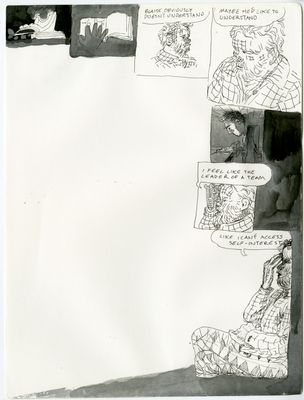 BLAISE OBVIOUSLY
DOESN'T UNDERSTAND
MAYBE HE'D LIKE TO
UNDERSTAND
I FEEL LIKE THE
LEADER OF A TEAM
LIKE I CAN'T ACCESS
SELF-INTEREST